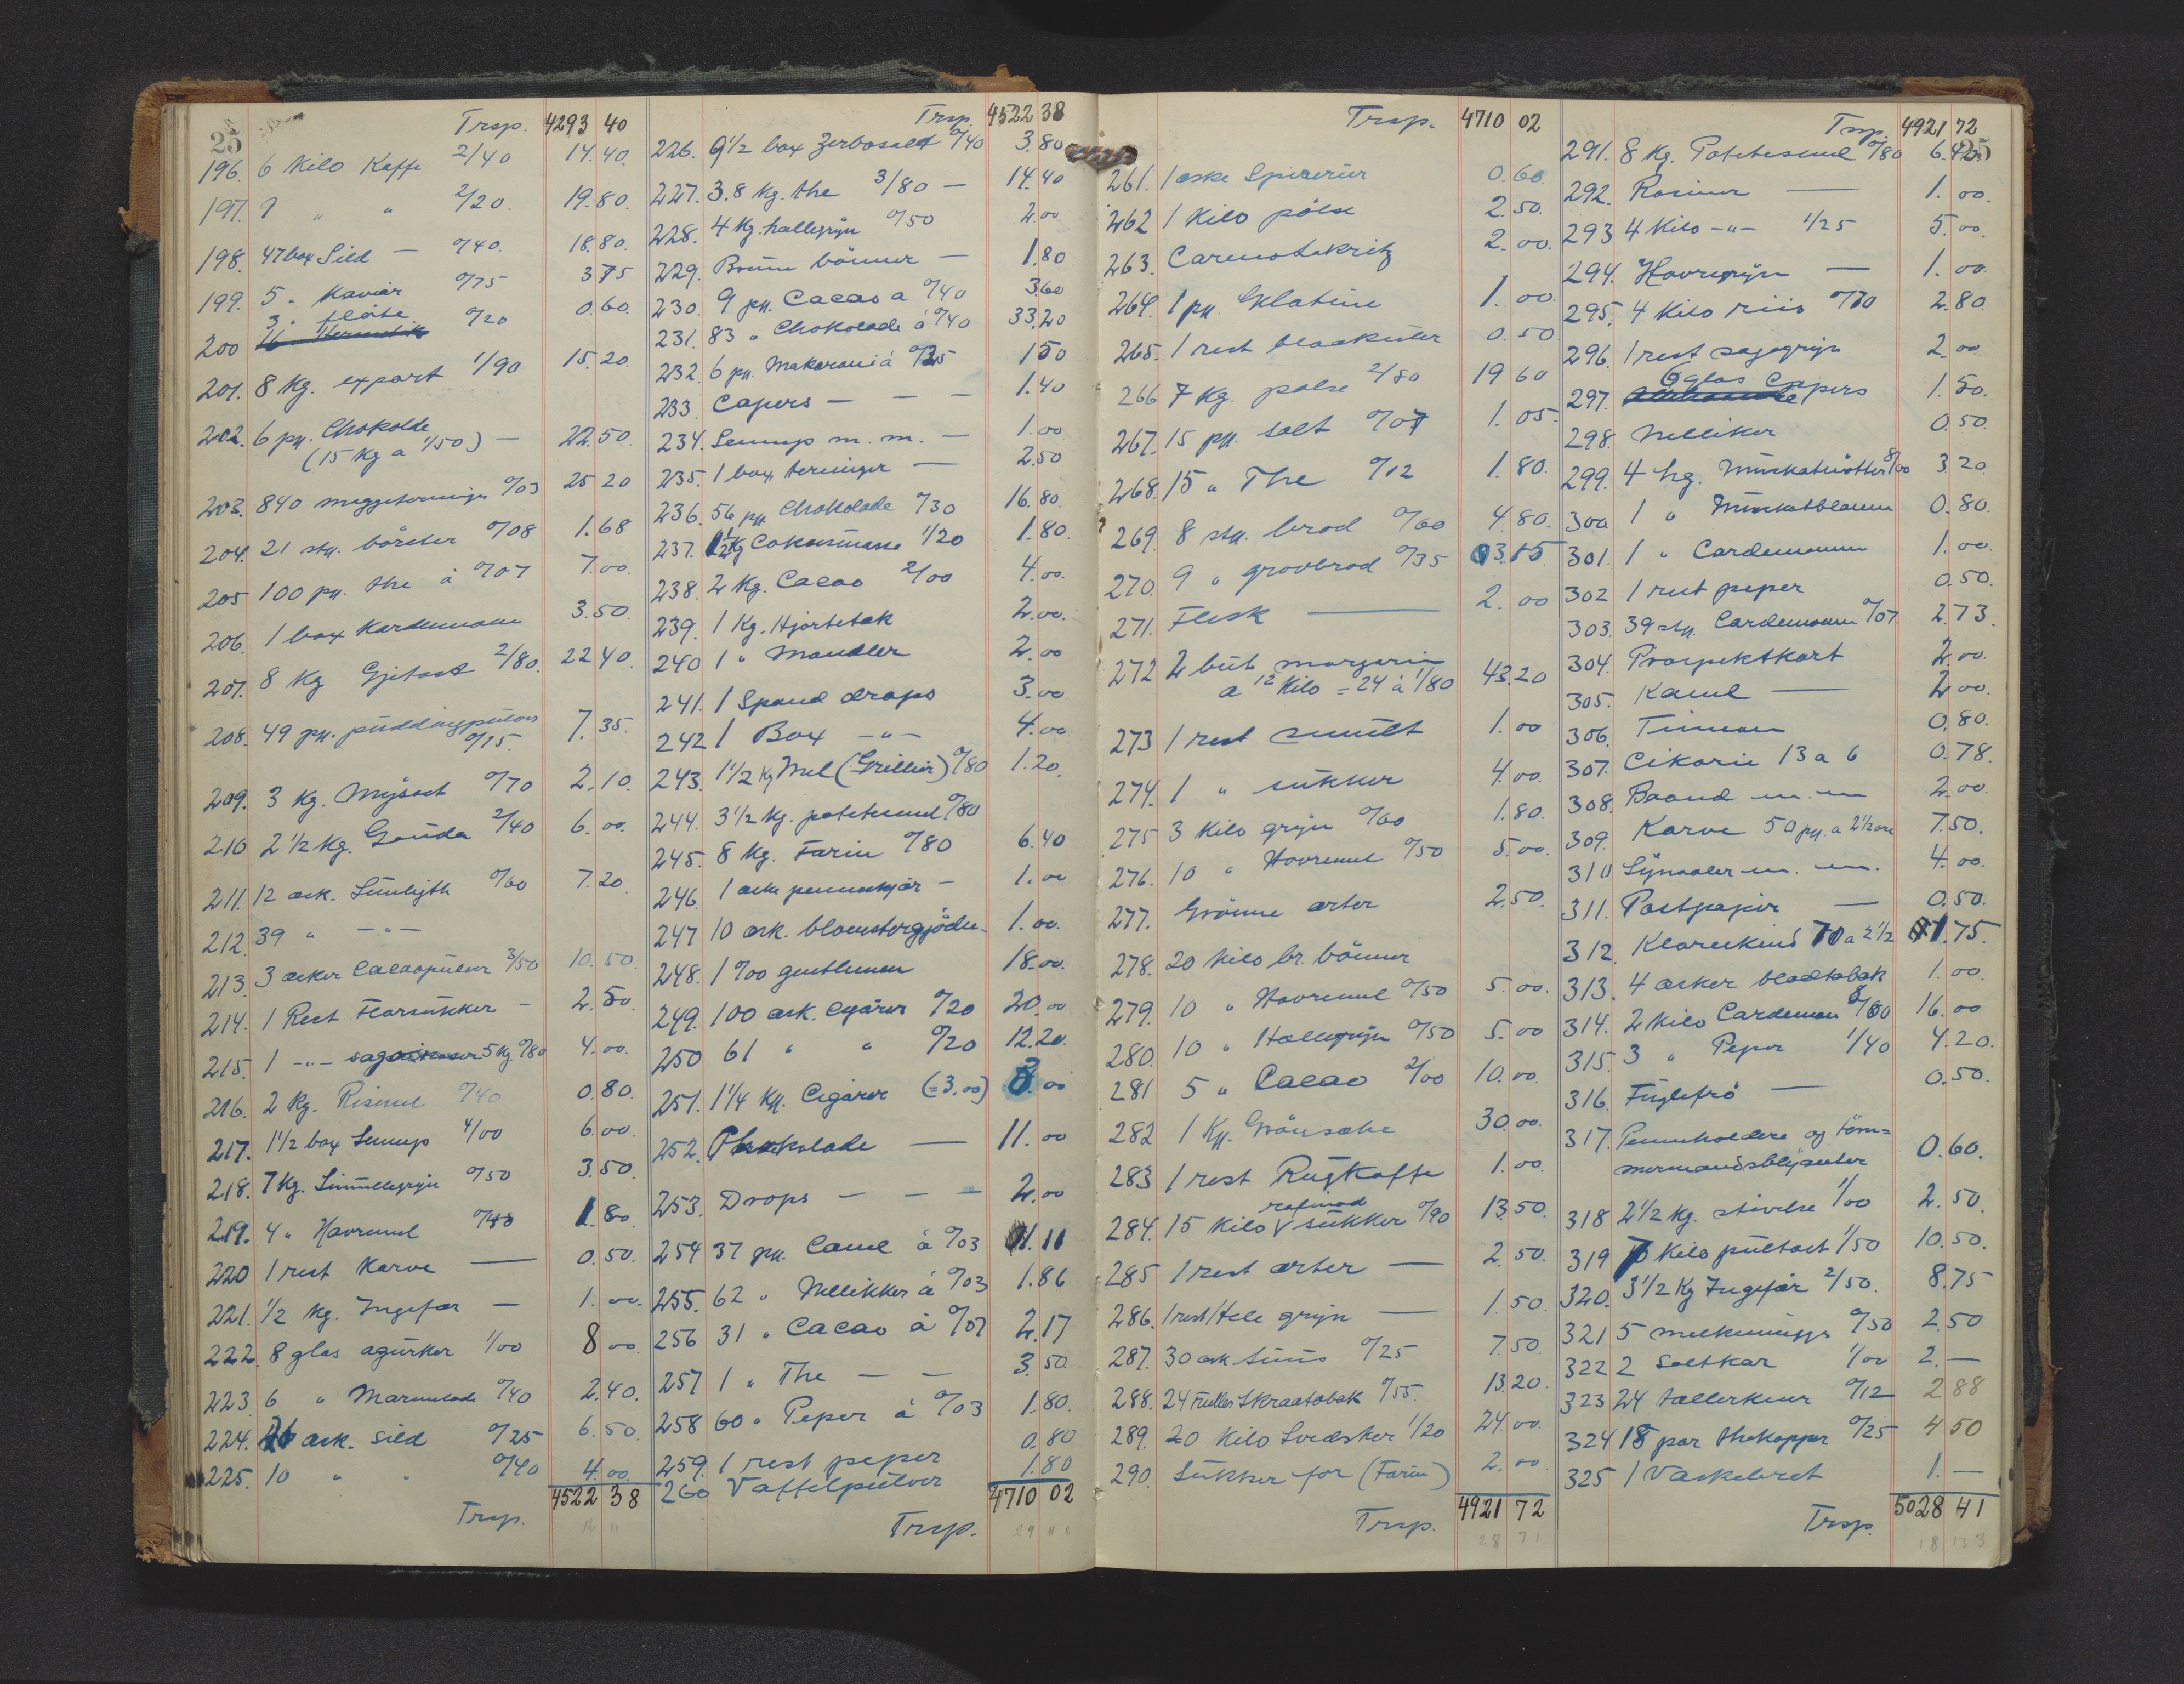 25
Trsp. 4293 40
196. 6 Kilo Kaffe 2/40 14.40.
197. 9 " " 2/20. 19.80.
198. 47 box Sild — 0/40. 18.80.
199. 5 " Kaviar 0/75 3 75
3 " fløte
200 0/20 0.60.
201. 8 Kg. export 1/90 15.20.
202. 6 pk. Chokolde
(15 Kg a 1/50) — 22.50.
203. 840 meggeterninger 0/03 25 20
204. 21 stk. börster 0/08 1.68
205 100 pk. the á 0/07 7.00.
206. 1 box Kardemome 3.50.
207. 8 Kg Gjetost 2/80. 22 40.
208. 49 pk. puddingpulver
0/15. 7.35.
209. 3 Kg. Mysost 0/70 2.10.
210 2 1/2 Kg. Gouda 2/40 6.00.
211. 12 ask. Sunligth 0/60 7.20.
212. 39 " — " —
213. 3 æsker Cacaopulver 3/50 10.50.
214. 1 Rest Florsukker — 2.50.
215. 1 — " — 5 Kg 0/80 4.00.
216. 2 Kg. Rismel 0/40 0.80.
217. 1 1/2 box Sennep 4/00 6.00.
218. 7 Kg. Simullegryn 0/50 3.50.
219. 4 " Havremel 1.80.
220 1 rest Karve — 0.50.
221. 1/2 Kg. Ingefær — 1.00.
222. 8 glas agurker 1/00 8 00.
223. 6 " Marmelade 0/40 2.40.
224. 26 ask. Sild 0/25 6.50.
225. 10 " " 0/40 4.00.
Trsp. 4522 38
Trsp. 4522 38
226. 9 1/2 box Zerbosalt 0/40 3.80
227. 3.8 Kg. the 3/80 — 14.40
228. 4 Kg. hallegryn 0/50 2.00
229. Brune bönner — 1.80
230. 9 pk. Cacao a 0/40 3.60
231. 83 " Chokolade á 0/40 33.20
232. 6 pk. Makaroni á 0/25 1 50
233. Capers — — — 1.40
234. Sennep m. m. — 1.00
235. 1 box terninger — 2.50
236. 56 pk Chokolade 0/30 16.80.
237. 1 1/2 Kg Cokosmasse 1/20 1.80.
238. 2 Kg. Cacao 2/00 4.00.
239. 1 Kg. Hjortetak 2.00.
240 1 " Mandler 2.00
241. 1 Spand drops 3.00
242 1 Box — " — 4.00
243. 1 1/2 Kg Mel (Grillier) 0/80 1.20.
244. 3 1/2 Kg. potetesmel 0/80
245. 8 Kg. Farin 0/80 6.40
246. 1 æske penneskjær — 1.00
247 10 ask. blomstergjödse. 1.00.
248. 1 0/00 gentlemen 18.00.
249. 100 ask. cigarer 0/20 20.00
250 61 " " 0/20 12.20.
251. 1 1/4 Kk. Cigarer (= 3.00) 3.00
252. Chokolade — 11.00
253. Drops — — — 2.00
254 37 pk. Canel á 0/03 1.11
255. 62 " Nellikker á 0/03 1.86
256 31 " Cacao á 0/07 2.17
257 1 " The — — 3.50
258 60 " Peper á 0/03 1.80.
259. 1 rest peper 0.80
260 Vaffelpulver 1.80
Trsp. 4710 02
Trsp. 4710 02
261. 1 æske Spirerier 0.60.
262 1 Kilo pölse 2.50.
263. Carmolakritz 2.00.
264. 1 pk. Gelatine 1.00.
265. 1 rest blaakuler 0.50
266 7 Kg. pølse 2/80 19 60
267. 15 pk. salt 0/07 1.05.
268. 15 " The 0/12 1.80.
269. 8 stk. brød 0/60 4.80.
270. 9 " grovbrød 0/35 3.15.
271. Flesk — 2.00
272 2 butt margarin
a 12 Kilo = 24 á 1/80 43.20
273 1 rest smult 1.00
274. 1 " sukker 4.00.
275 3 Kilo gryn 0/60 1.80.
276. 10 " Havremel 0/50 5.00.
277. Grönne ærter 2.50.
278. 20 Kilo br. bönner
279. 10 " Havremel 0/50 5.00.
280. 10 " Hallegryn 0/50 5.00
281 5 " Cacao 2/00 10.00.
282 1 Kk. Grönsæbe 30.00.
283 1 rest Rugkaffe 1.00.
rafinad
284. 15 Kilo V sukker 0/90 13.50.
285 1 rest ærter — 2.50.
286. 1 rest Hele gryn — 1.50.
287. 30 ask Snus 0/25 7.50.
288. 24 ruller Skraatobak 0/55. 13.20.
289. 20 Kilo Svedsker 1/20 24.00.
290. Sukker for (Farin) 2.00
Trsp. 4921 72
Trsp. 4921 72
25
291. 8 Kg. Potetesmel 0/80 6.40.
292. Rosiner — 1.00.
293 4 Kilo — " — 1/25 5.00.
294. Havregryn — 1.00.
295. 4 Kilo riis 0/70 2.80.
296. 1 rest sagogryn 2.00
297. 6 glas Cappers 1.50.
298. Nelliker 0.50.
299. 4 hg. Muskatnötter 8/00 3.20.
300 1 " Muskatblomme 0.80.
301. 1 " Cardemomme 1.00.
302 1 rest peper 0.50.
303. 39 stk. Cardemomm 0/07. 2.73.
304. Prospektkort 2.00.
305. Kanel — 2.00.
306. Timean 0.80.
307. Cikorie 13 a 6 0.78.
308. Baand m. m 2.00.
309. Karve 50 pk. a 2 1/2 øre 7.50.
310 Synaaler m. m. 4.00.
311. Postpapir — 0.50.
312. Klareskind 70 a 2 1/2 1.75.
313. 4 æsker bladtobak 1.00.
314. 2 Kilo Cardemom 8/00 16.00
315. 3 " Peper 1/40 4.20.
316. Fuglefrö — 0.50.
317. Penneholdere og töm=
mermandsblyanter 0.60.
318 2 1/2 Kg. stivelse 1/00 2.50.
319 7 Kilo pultost 1/50 10.50.
320. 3 1/2 Kg Ingefær 2/50. 8.75
321 5 melkemugger 0/50 2.50
322 2 Saltkar 1/00 2.—
323 24 tallerkener 0/12 2 88
324 18 par thekopper 0/25 4 50
325 1 Vaskebret 1.—
Trsp. 5028 41